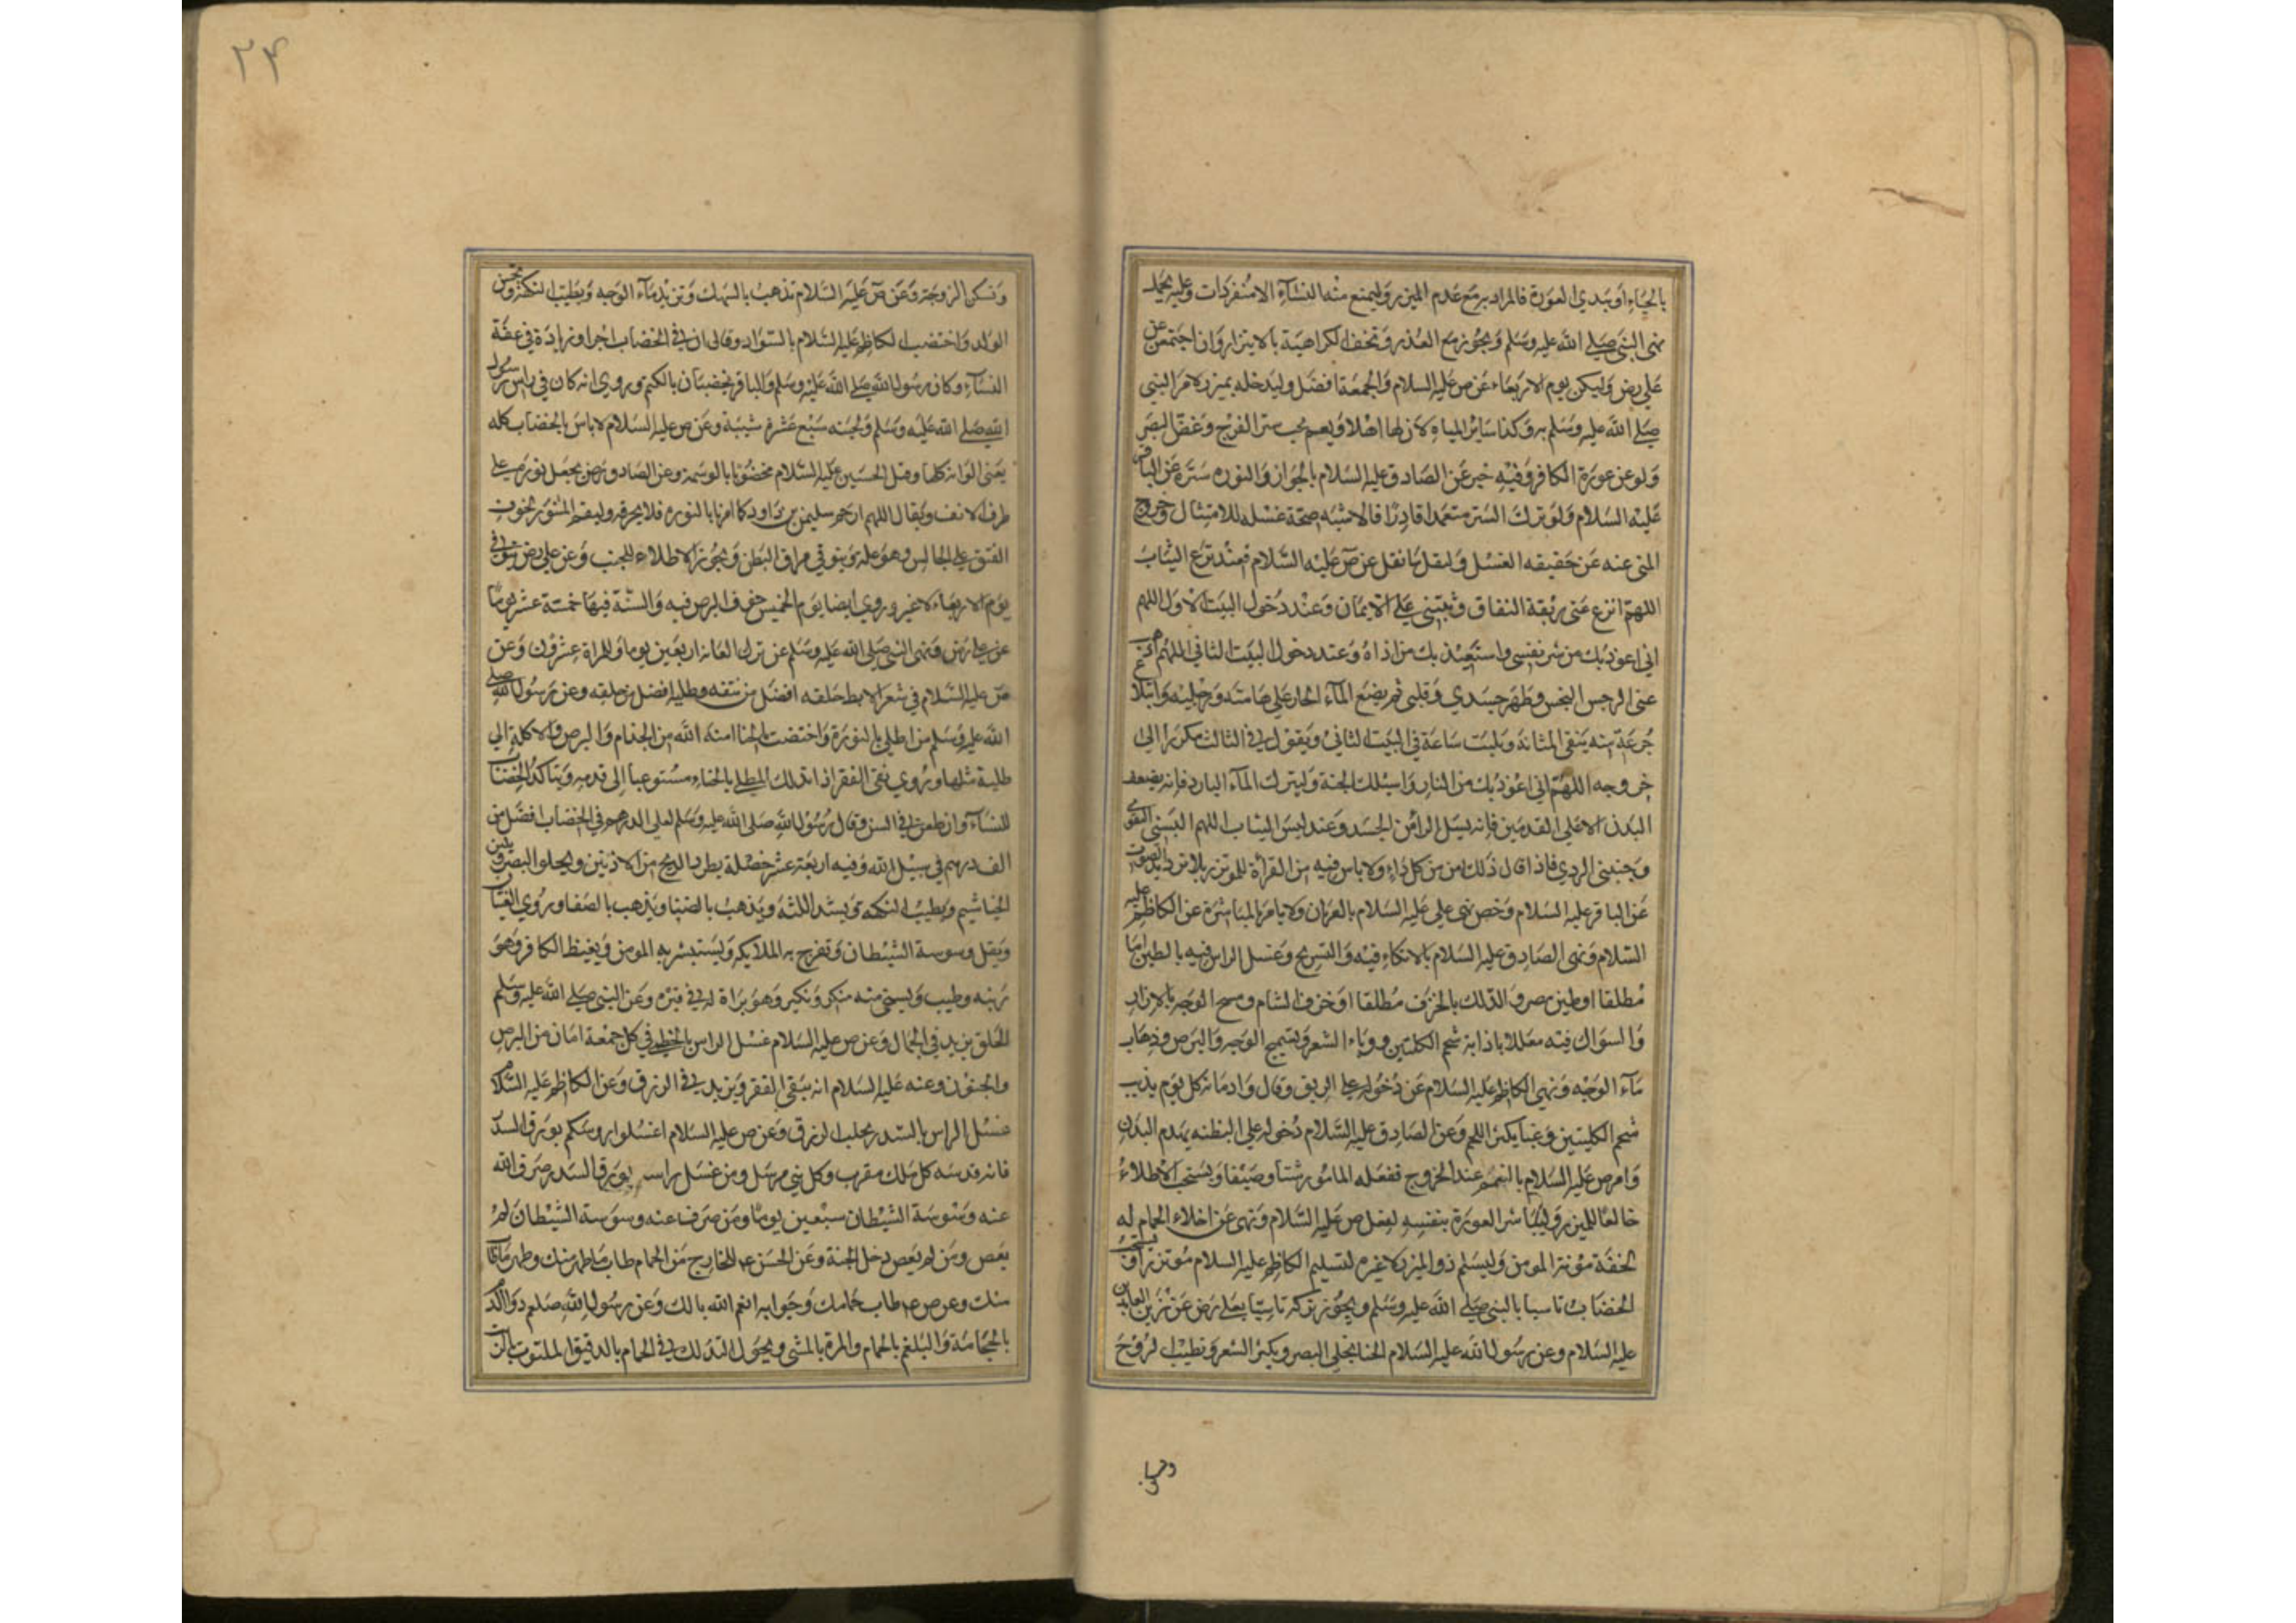 بالحياء او يبدي العورة فالمراد به مع عدم الميزر وليمنع منه النساء الا منفردات وعليه يحمل
نهى النبي صلى الله عليه وسلم ويجوز مع العذر وتخف الكراهية بالايتزار وان اجتمعن عن
علي رض وليكن يوم الاربعاء عن ص عليه السلام والجمعة افضل وليدخله بميزر لامر النبي
صلى الله عليه وسلم به وكذا ساير المياه لان لها اهلا ويعم يجب ستر الفرج وغض البصر
ولو عن عورة الكافر وفيه خبر عن الصادق عليه السلام بالجواز والنوره سترة عن الباقر
عليه السلام ولو ترك الستر متعمدا قادرا فالاشبه صحة غسله للامتثال وخروج
المنهي عنه عن حقيقه الغسل وليقل ما نقل عن ص عليه السلام فعند نزع الثياب
اللهم انزع عني ربقة النفاق وثبتني على الايمان وعند دخول البيت الاول اللهم
اني اعوذ بك من شر نفسي واستعيذ بك من اذاه وعند دخول البيت الثاني اللهم اذهب
عني الرجس النجس وطهر جسدي وقلبي ثم يضع الماء الحار على هامته ورجليه وابتلا
جرعة منه ينقي المثانة ويلبث ساعة في البيت الثاني ويقول في الثالث مكررا الى
خروجه اللهم اني اعوذ بك من النار واسئلك الجنة وليترك الماء البارد فانه يضعف
البدن الا على القدمين فانه يسل الدا من الجسد وعند لبس الثياب اللهم البسني التقوى
وجنبني الردي فاذا قال ذلك امن من كل داء ولا باس فيه من القرأة للموتزر بلا ترديد الصوت
عن الباقر عليه السلام وخص نهي علي عليه السلام بالعريان ولا بامر بالمباشرة عن الكاظم عليه
السلام ونهى الصادق عليه السلام بالاتكاء فيه والتسريح وغسل الراس فيه بالطين اما
مطلقا او طين مصر والدلك بالخزف مطلقا او خزف الشام ومسح الوجه بالازار
والسواك فيه معللا باذابة شحم الكليتين ووباء الشعر وتسميج الوجه والبرص وذهاب
ماء الوجه ونهى الكاظم عليه السلام عن دخوله على الريق وقال وادمانه كل يوم يذيب
شحم الكليتين وغبا يكثر اللحم وعن الصادق عليه السلام دخوله على البطنه يهدم البدن
وامر ص عليه السلام بالتعمم عند الخروج ففعله المامور شتا وصيفا ويستحب الاطلاء
خالعا للميزر وليباشر العورة بنفسه لفعل ص عليه السلام ونهى عن اخلاء الحمام له
لخفة مؤنة المومن وليسلم ذو الميزر لا غيره لتسليم الكاظم عليه السلام موتزرا ويستحب
الخضاب تاسيا بالنبي صلى الله عليه وسلم ويجوز تركه تاسيا بعلي رض عن زين العابدين
عليه السلام وعن رسول الله عليه السلام الحنا يجلي البصر ويكثر الشعر وتطيب الروح
وتسكن
وتسكن الزوجة وعن ص عليه السلام تذهب بالسهك وتزيد ماء الوجه وتطيب النكهة وتحسن
الولد واختضب الكاظم عليه السلام بالسواد وقال ان في الخضاب اجرا وزيادة في عفة
النساء وكان رسول الله صلى الله عليه وسلم والباقر يخضبان بالكتم وروي انه كان في راس رسول
الله صلى الله عليه وسلم ولحيته سبع عشرة شيبة وعن ص عليه السلام لا باس بالخضاب كله
يعني الوانه كلها وقتل الحسين عليه السلام مخضوبا بالوسمة وعن الصادق رض يجعل نورته على
طرف الانف ويقال اللهم ارحم سليمن بن داود كما امرنا بالنوره فلا يحرقه وليقم المتنور لخوف
الفتق على الجالس وهو علة بوتوقي مراق البطن ويجوز الاطلاء للجنب وعن علي رض توقي
يوم الاربعاء لا غير وروي ايضا يوم الخميس خوف البرص فيه والسنة فيها خمسة عشر يوما
عن علي رض ونهى النبي صلى الله عليه وسلم عن ترك العانة اربعين يوما وللمراة عشرون وعن
ص عليه السلام في شعر الابط حلقه افضل من نتفه وطليه افضل من حلقه وعن رسول الله صلى
الله عليه وسلم من اطلى بالنورة واختضب بالحنا امنه الله من الجذام والبرص والاكلة الى
طلية مثلها وروي نفي الفقر اذا تدلك المطلي بالحناء مستوعبا الى قدمه ويتاكد الخضاب
للنساء وان طعن في السن وقال رسول الله صلى الله عليه وسلم لعلي الدرهم في الخضاب افضل من
الف درهم في سبيل الله وفيه اربعة عشر خصلة يطرد الريح من الاذنين ويجلو البصر ويلين
الخياشيم ويطيب النكهه ويشد اللثة ويذهب بالضنا ويذهب بالصفا وروي الغثيان
ويقل وسوسة الشيطان وتفرح به الملايكه ويستبشر به المومن ويغيظ الكافر وهو
زينه وطيب ويستحي منه منكر ونكير وهو براة له في قبره وعن النبي صلى الله عليه وسلم
الحلق يزيد في الجمال وعن ص عليه السلام غسل الراس بالخطمي في كل جمعة امان من البرص
والجنون وعنه عليه السلام انه ينفي الفقر ويزيد في الرزق وعن الكاظم عليه السلام
غسل الراس بالسدر يجلب الرزق وعن ص عليه السلام اغسلوا روسكم بورق السدر
فانه قدسه كل ملك مقرب وكل نبي مرسل ومن غسل راسه بورق السدر صرف الله
عنه وسوسة الشيطان سبعين يوما ومن صرف عنه وسوسة الشيطان لم
يعص ومن لم يعص دخل الجنة وعن الحسن عم للخارج من الحمام طاب ما طهر منك وطهر ما طاب
منك وعن ص عم طاب حمامك وجوابه انعم الله بالك وعن رسول الله صلعم دواء الدم
بالحجامة والبلغم بالحمام والمرة بالمشي ويجوز التدلك في الحمام بالدقيق الملتوت بالزيت